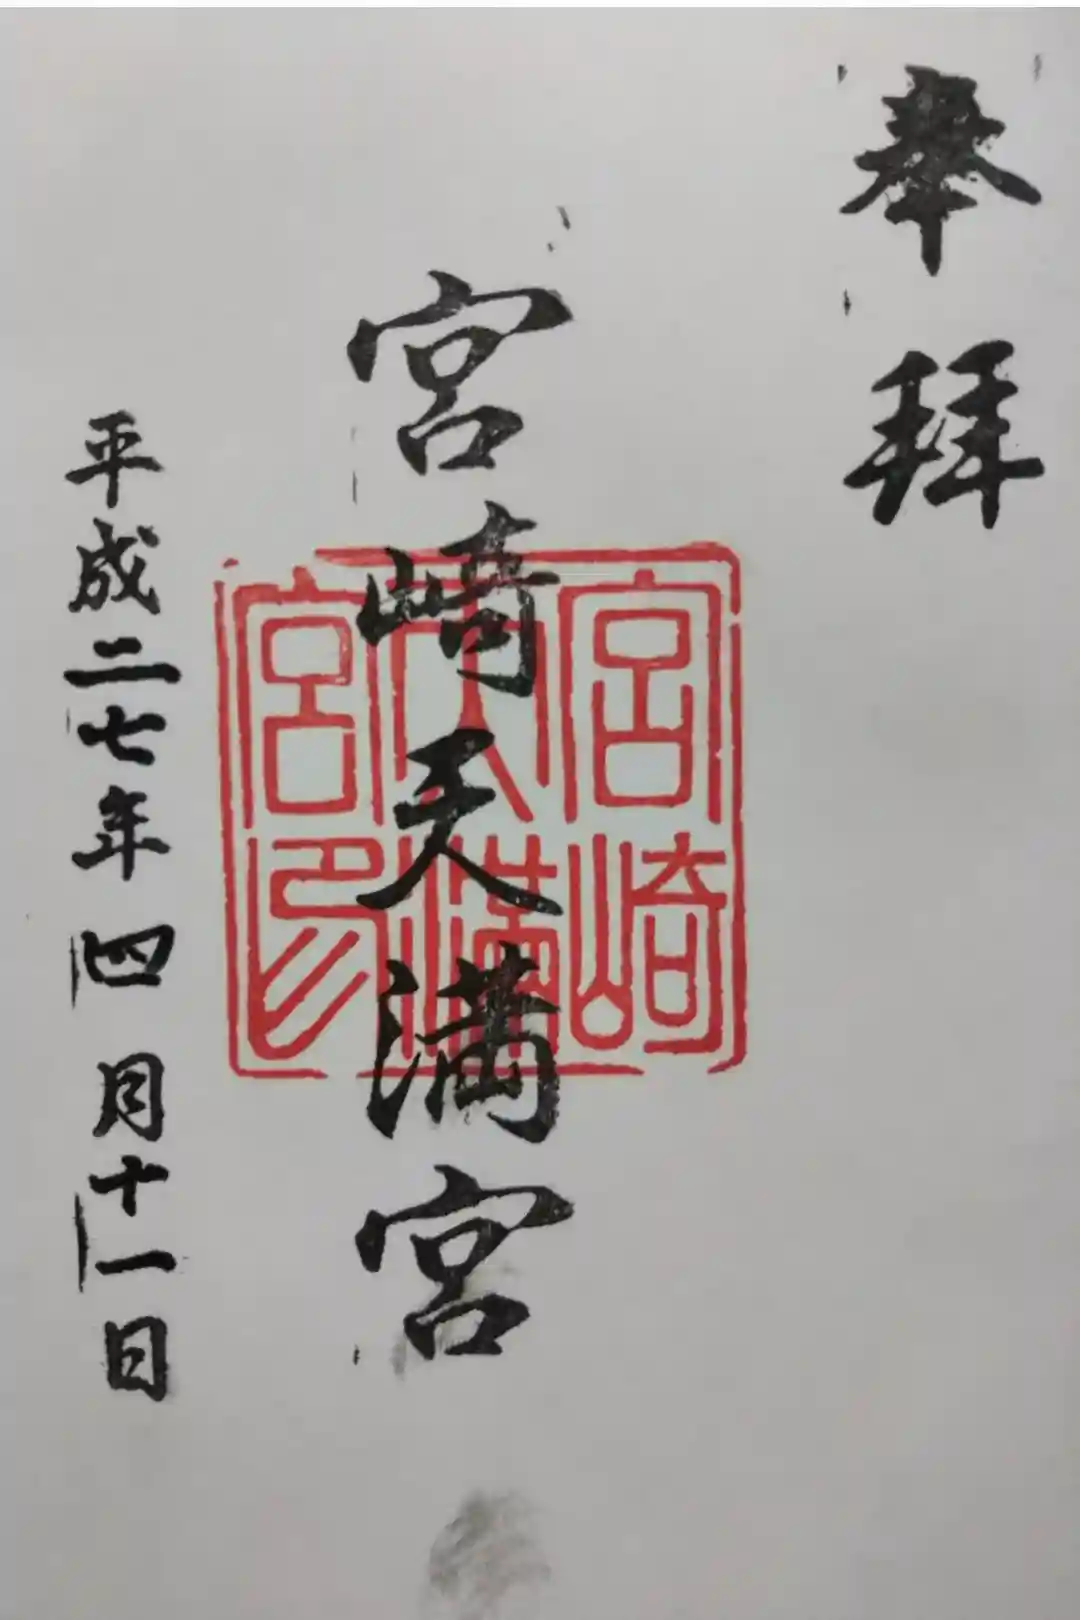 奉拜
宮崎天満宮
宮崎
天満
宮印
平成二七年四月十一日